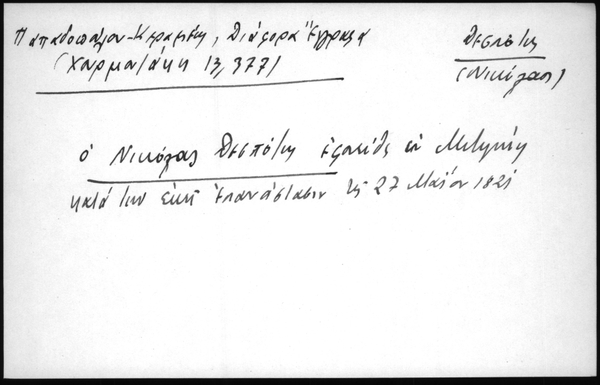 Παπαδοπούλου-Κεραμέως, Διάφορα Έγγραφα
(Χαρματάκη 13, 377)
Δεσπότης
(Νικόλαος)
ὁ Νικόλας Δεσπότης ἐν
κατὰ τὴν ἐκεῖ ἐπανάστασιν τῇ 27 Μαΐου 1821